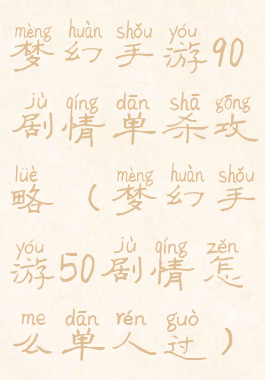 mèng huàn shǒu yóu
梦幻手游90
jù qíng dān shā gōng
剧情单杀攻
lüè mèng huàn shǒu
略（梦幻手
yóu jù qíng zěn
游50剧情怎
me dān rén guò
么单人过）